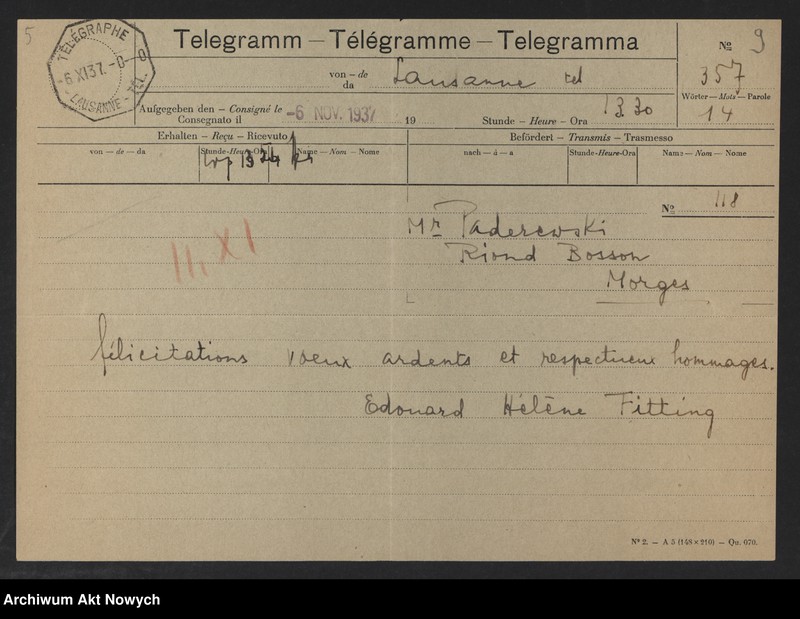 5
TÉLÉGRAPHE
-6.XI37.-0-9
-LAUSANNE- TÉL.
Telegramm – Télégramme – Telegramma
№ 9
von – de
da
Lausanne tel
357
Wörter – Mots – Parole
14
Aufgegeben den – Consigné le
Consegnato il
-6 NOV. 1937
19
Stunde – Heure – Ora
1330
Erhalten – Reçu – Ricevuto
Befördert – Transmis – Trasmesso
von – de – da
Stunde-Heure-Ora
Name – Nom – Nome
nach – à – a
Stunde-Heure-Ora
Name – Nom – Nome
№ 118
Mr Paderewski
Riond Bosson
Morges
11. XI
félicitations voeux ardents et respectueux hommages.
Edouard Hélène Fitting
№ 2. – A 5 (148×210) – Qu. 070.
Archiwum Akt Nowych